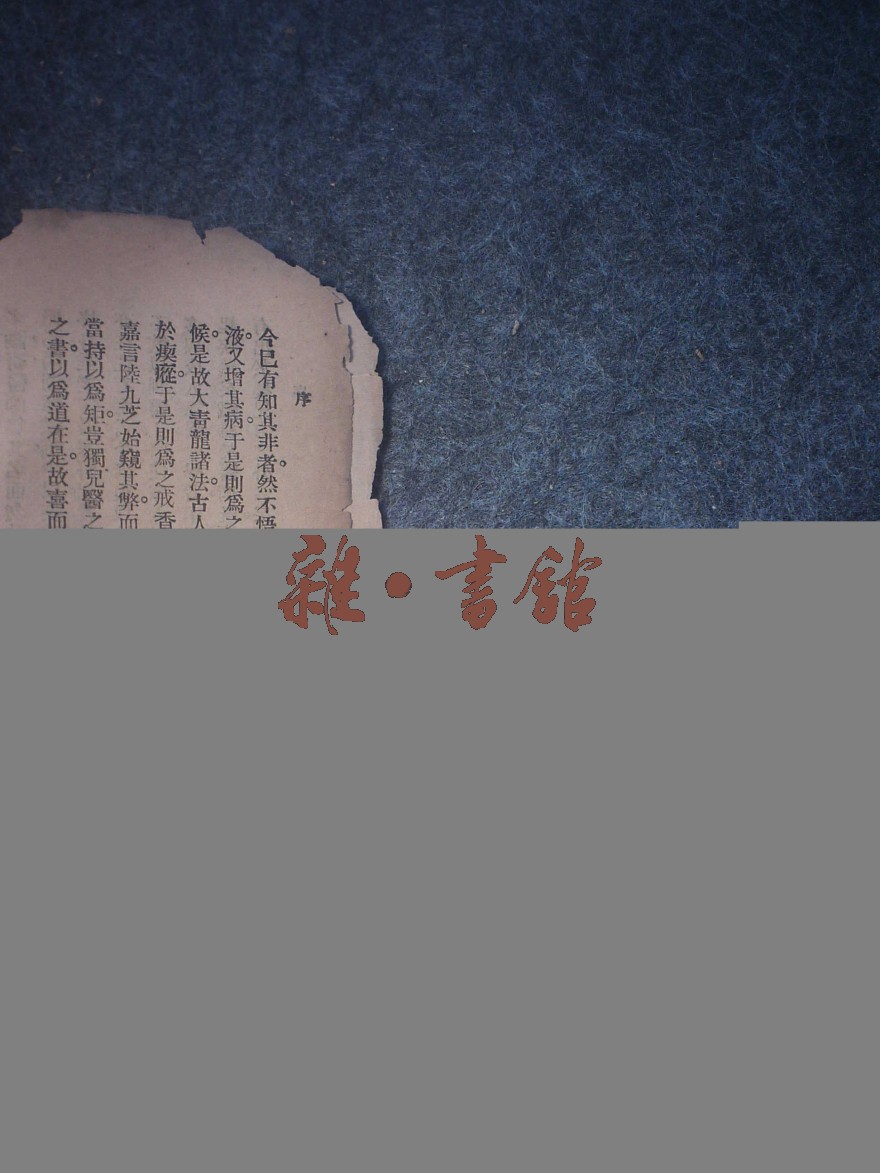 序
今已有知其非者。然不悟
液。又增其病。于是則爲之
候。是故大青龍諸法。古人
於瘈瘲。于是則爲之戒香
嘉言陸九芝始窺其弊。而
當持以爲矩。豈獨兒醫之
之書。以爲道在是。故喜而
雜·書館